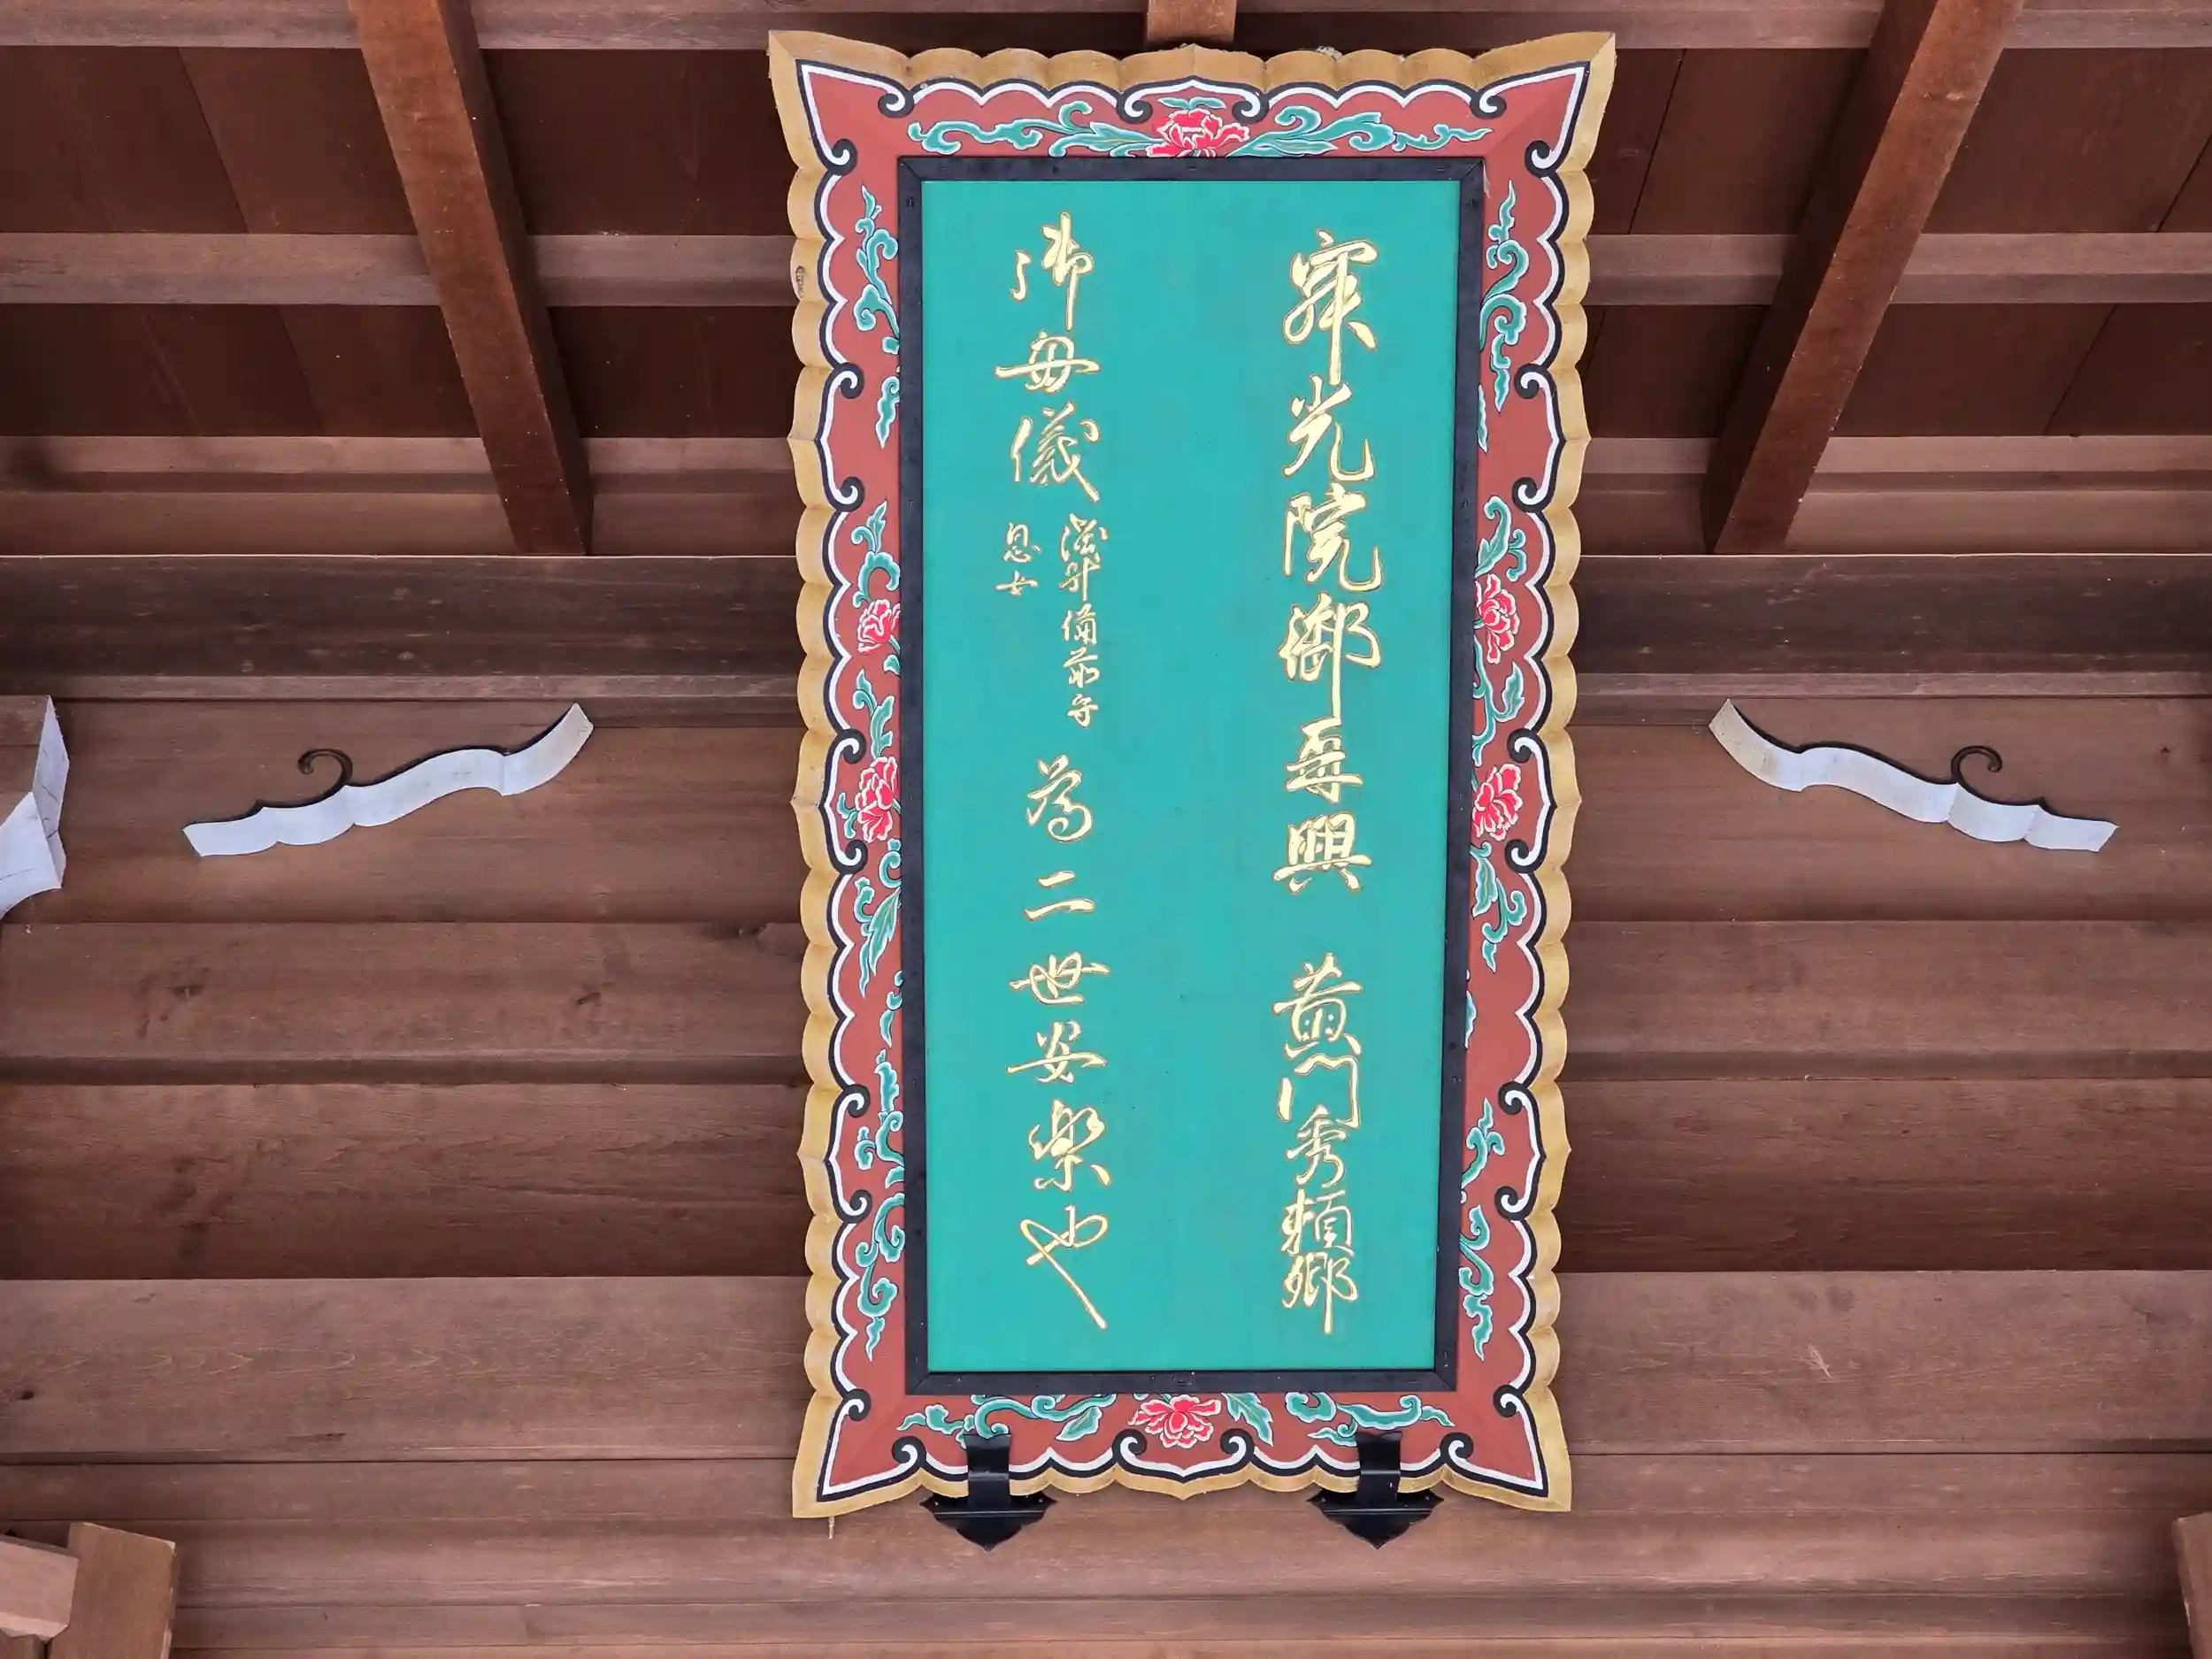 寂光院御再興 黄門秀頼卿
御母儀 浅井備前守
息女
為二世安楽也